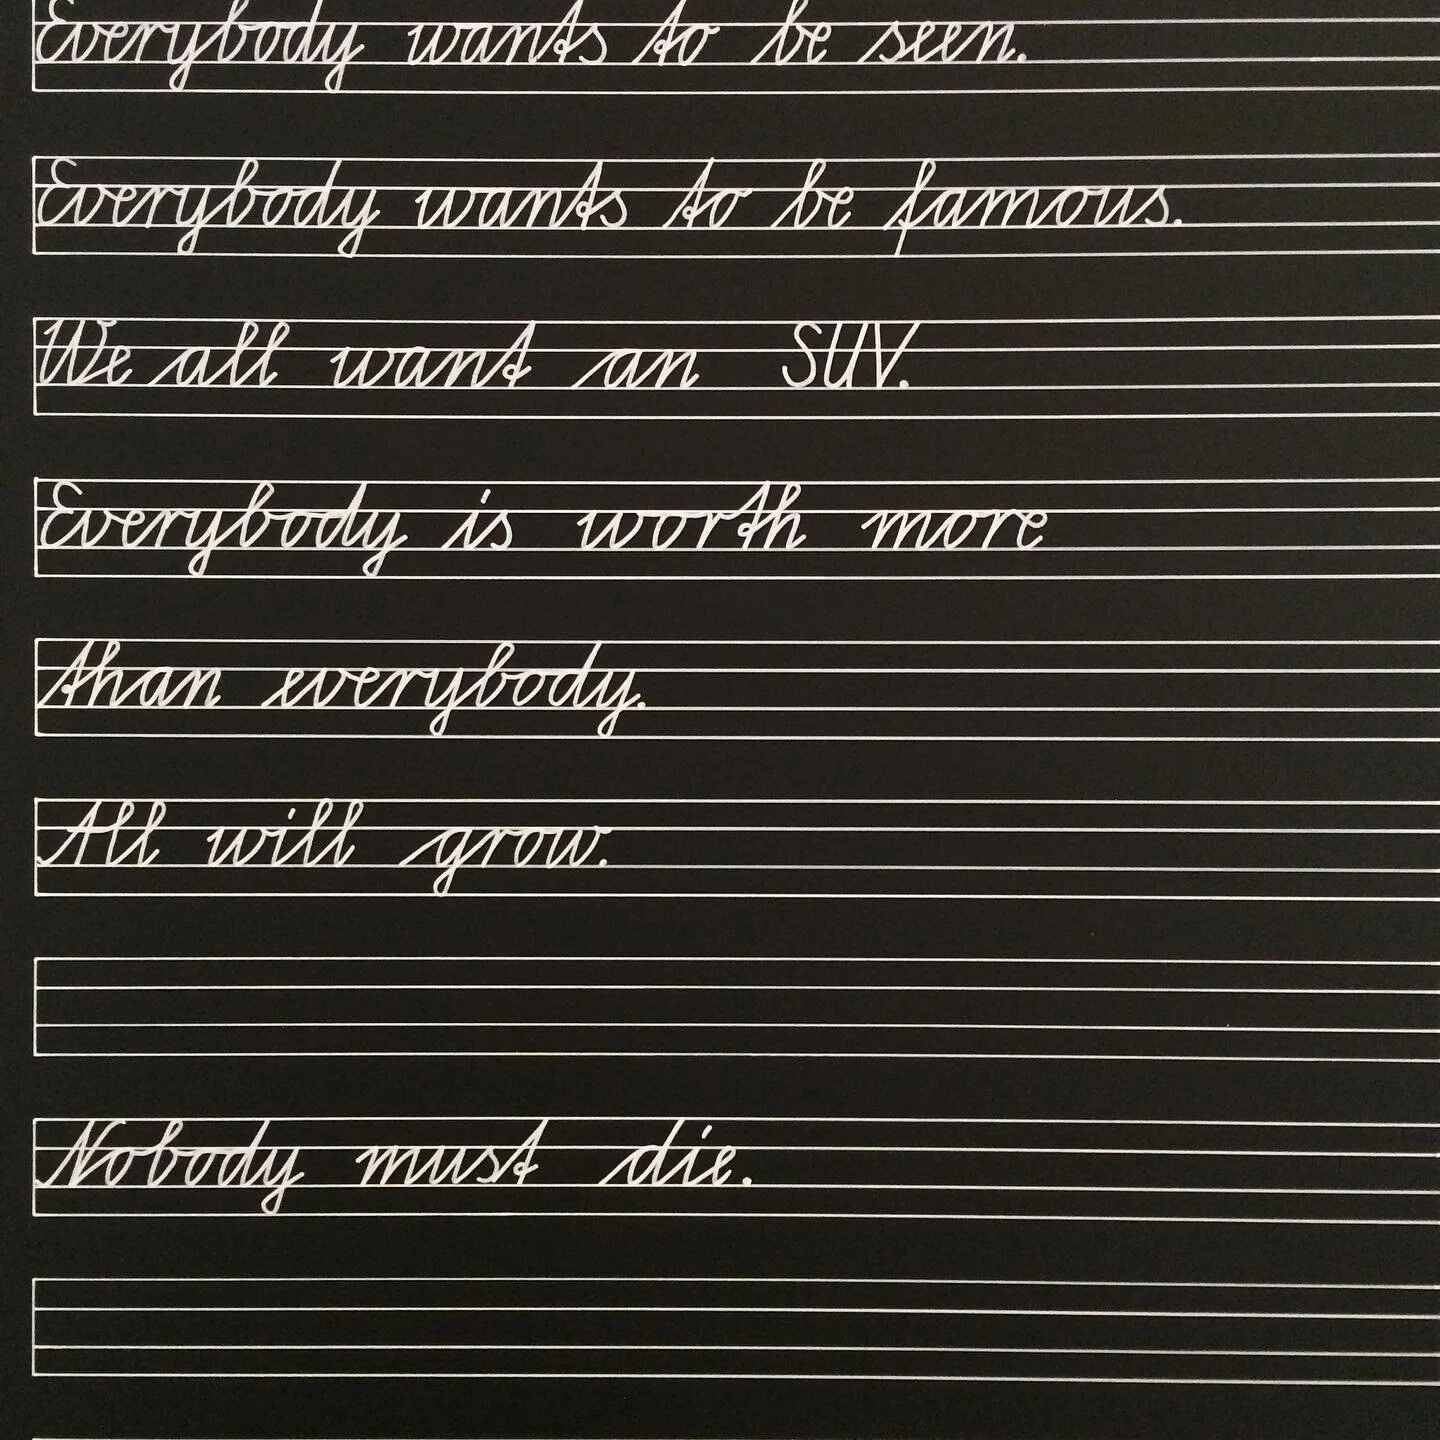 Everybody wants to be seen.
Everybody wants to be famous.
We all want an SUV.
Everybody is worth more
than everybody.
All will grow.
Nobody must die.